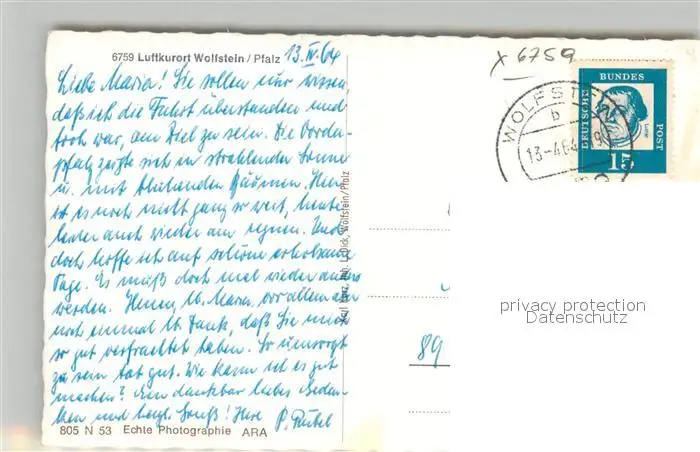 6759 Luftkurort Wolfstein / Pfalz 13.IV.64
Liebe Maria! Sie sollen nur wissen,
daß ich die Fahrt überstanden und
froh war, am Ziel zu sein. Die Vorder-
pfalz zeigte sich in strahlender Sonne
u. mit blühenden Bäumen. Hier
ist es noch nicht ganz so weit, heute
leider auch wieder am regnen. Und
doch hoffe ich auf schöne erholsame
Tage. Es muß doch mal wieder anders
werden. Ihnen, lb. Maria, vor allem aber
noch einmal lb. Dank, daß Sie mich
so gut verfrachtet haben. So umsorgt
zu sein tat gut. Wie kann ich es gut
machen? Ein dankbar liebes Geden-
ken und herzl. Gruß! Ihre P. Rübel
805 N 53 Echte Photographie ARA
Karl Lutz, Wolfstein/Pfalz
x 6759
WOLFST
b
13-4.64-9
DEUTSCHE BUNDES POST
Luther
15
89
privacy protection
Datenschutz